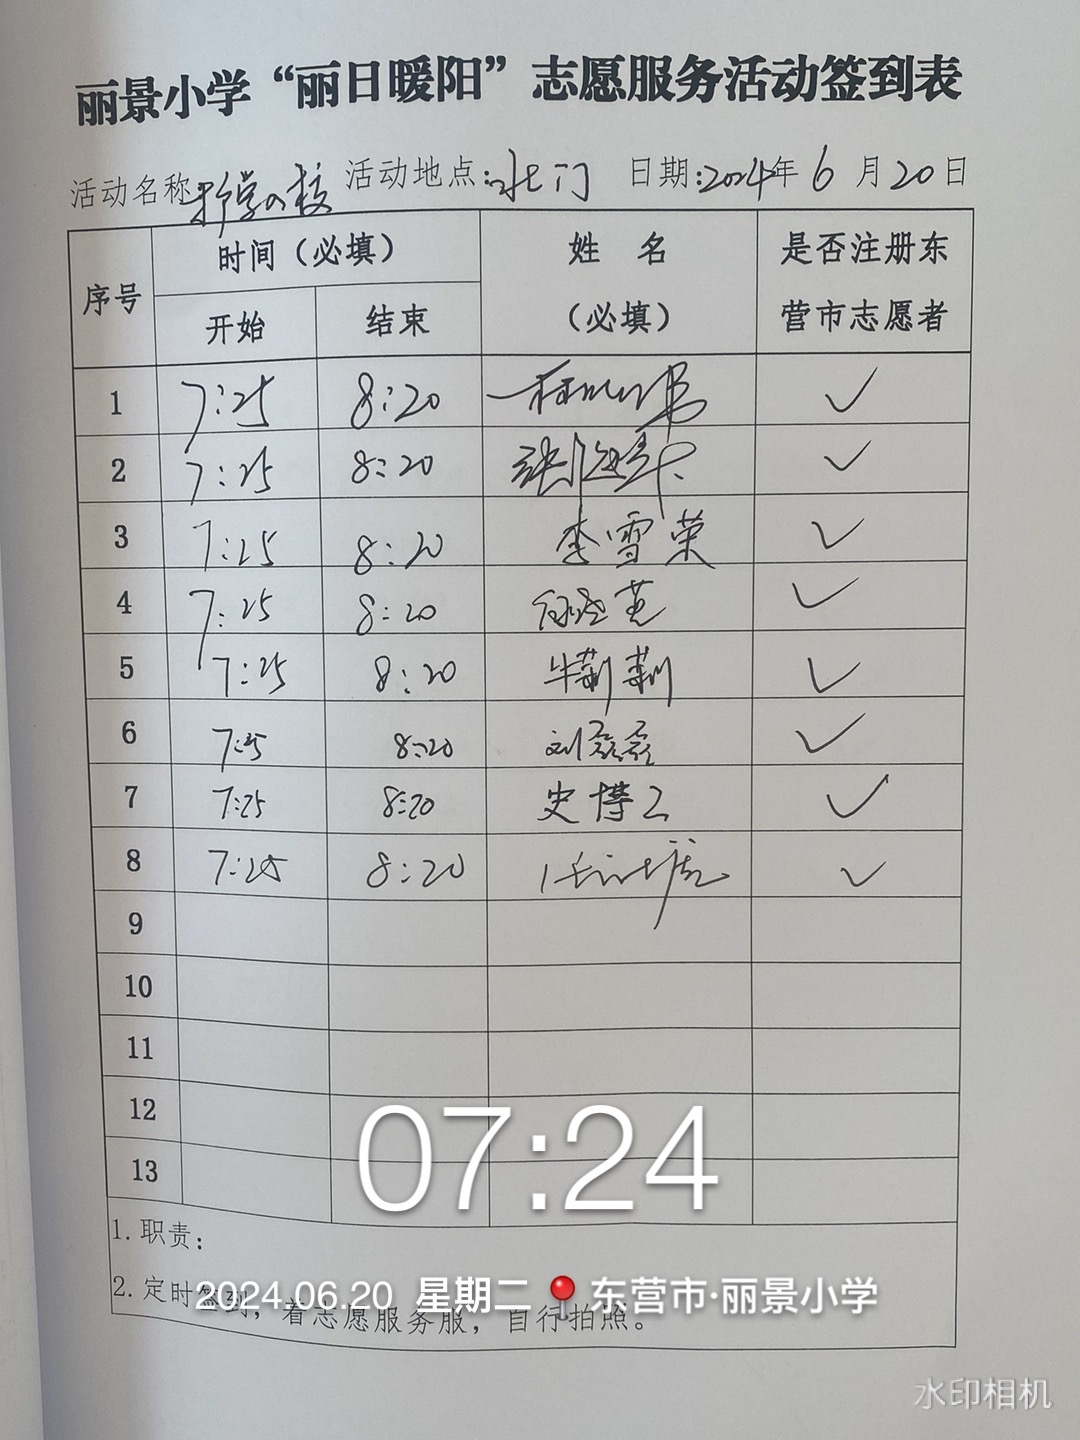 丽景小学“丽日暖阳”志愿服务活动签到表
活动名称 活动地点:北门 日期:2024年6月20日
序号 时间（必填） 姓 名 是否注册东
开始 结束 （必填） 营市志愿者
1 7:25 8:20 ✓
2 7:25 8:20 ✓
3 7:25 8:20 李雪荣 ✓
4 7:25 8:20 ✓
5 7:25 8:20 牛莉莉 ✓
6 7:25 8:20 刘磊磊 ✓
7 7:25 8:20 史博 ✓
8 7:25 8:20 ✓
9
10
11
12
13
07:24
1.职责：
2.定时签到，着志愿服务服，自行拍照。
2024.06.20 星期二 东营市·丽景小学
水印相机